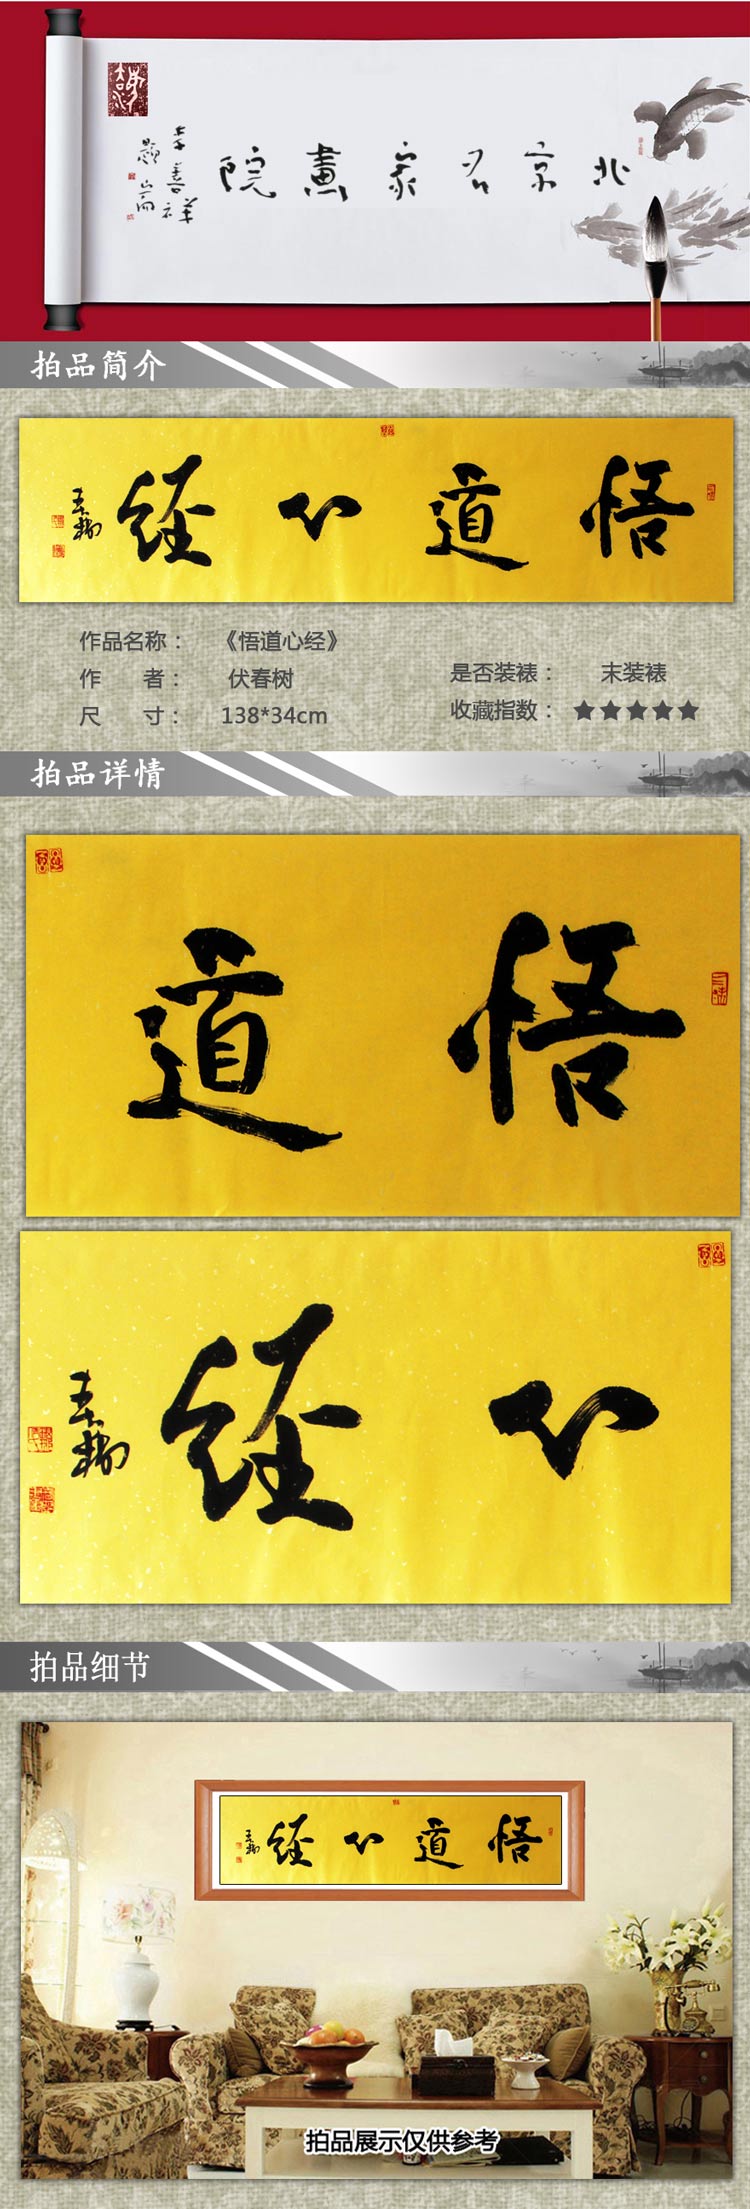 北京名家畫院
李善祥
題
拍品简介
悟道心经
春树
作品名称： 《悟道心经》
作 者： 伏春树
尺 寸： 138*34cm
是否装裱： 末装裱
收藏指数： ★★★★★
拍品详情
悟道
心经
春树
拍品细节
悟道心经
春树
拍品展示仅供参考